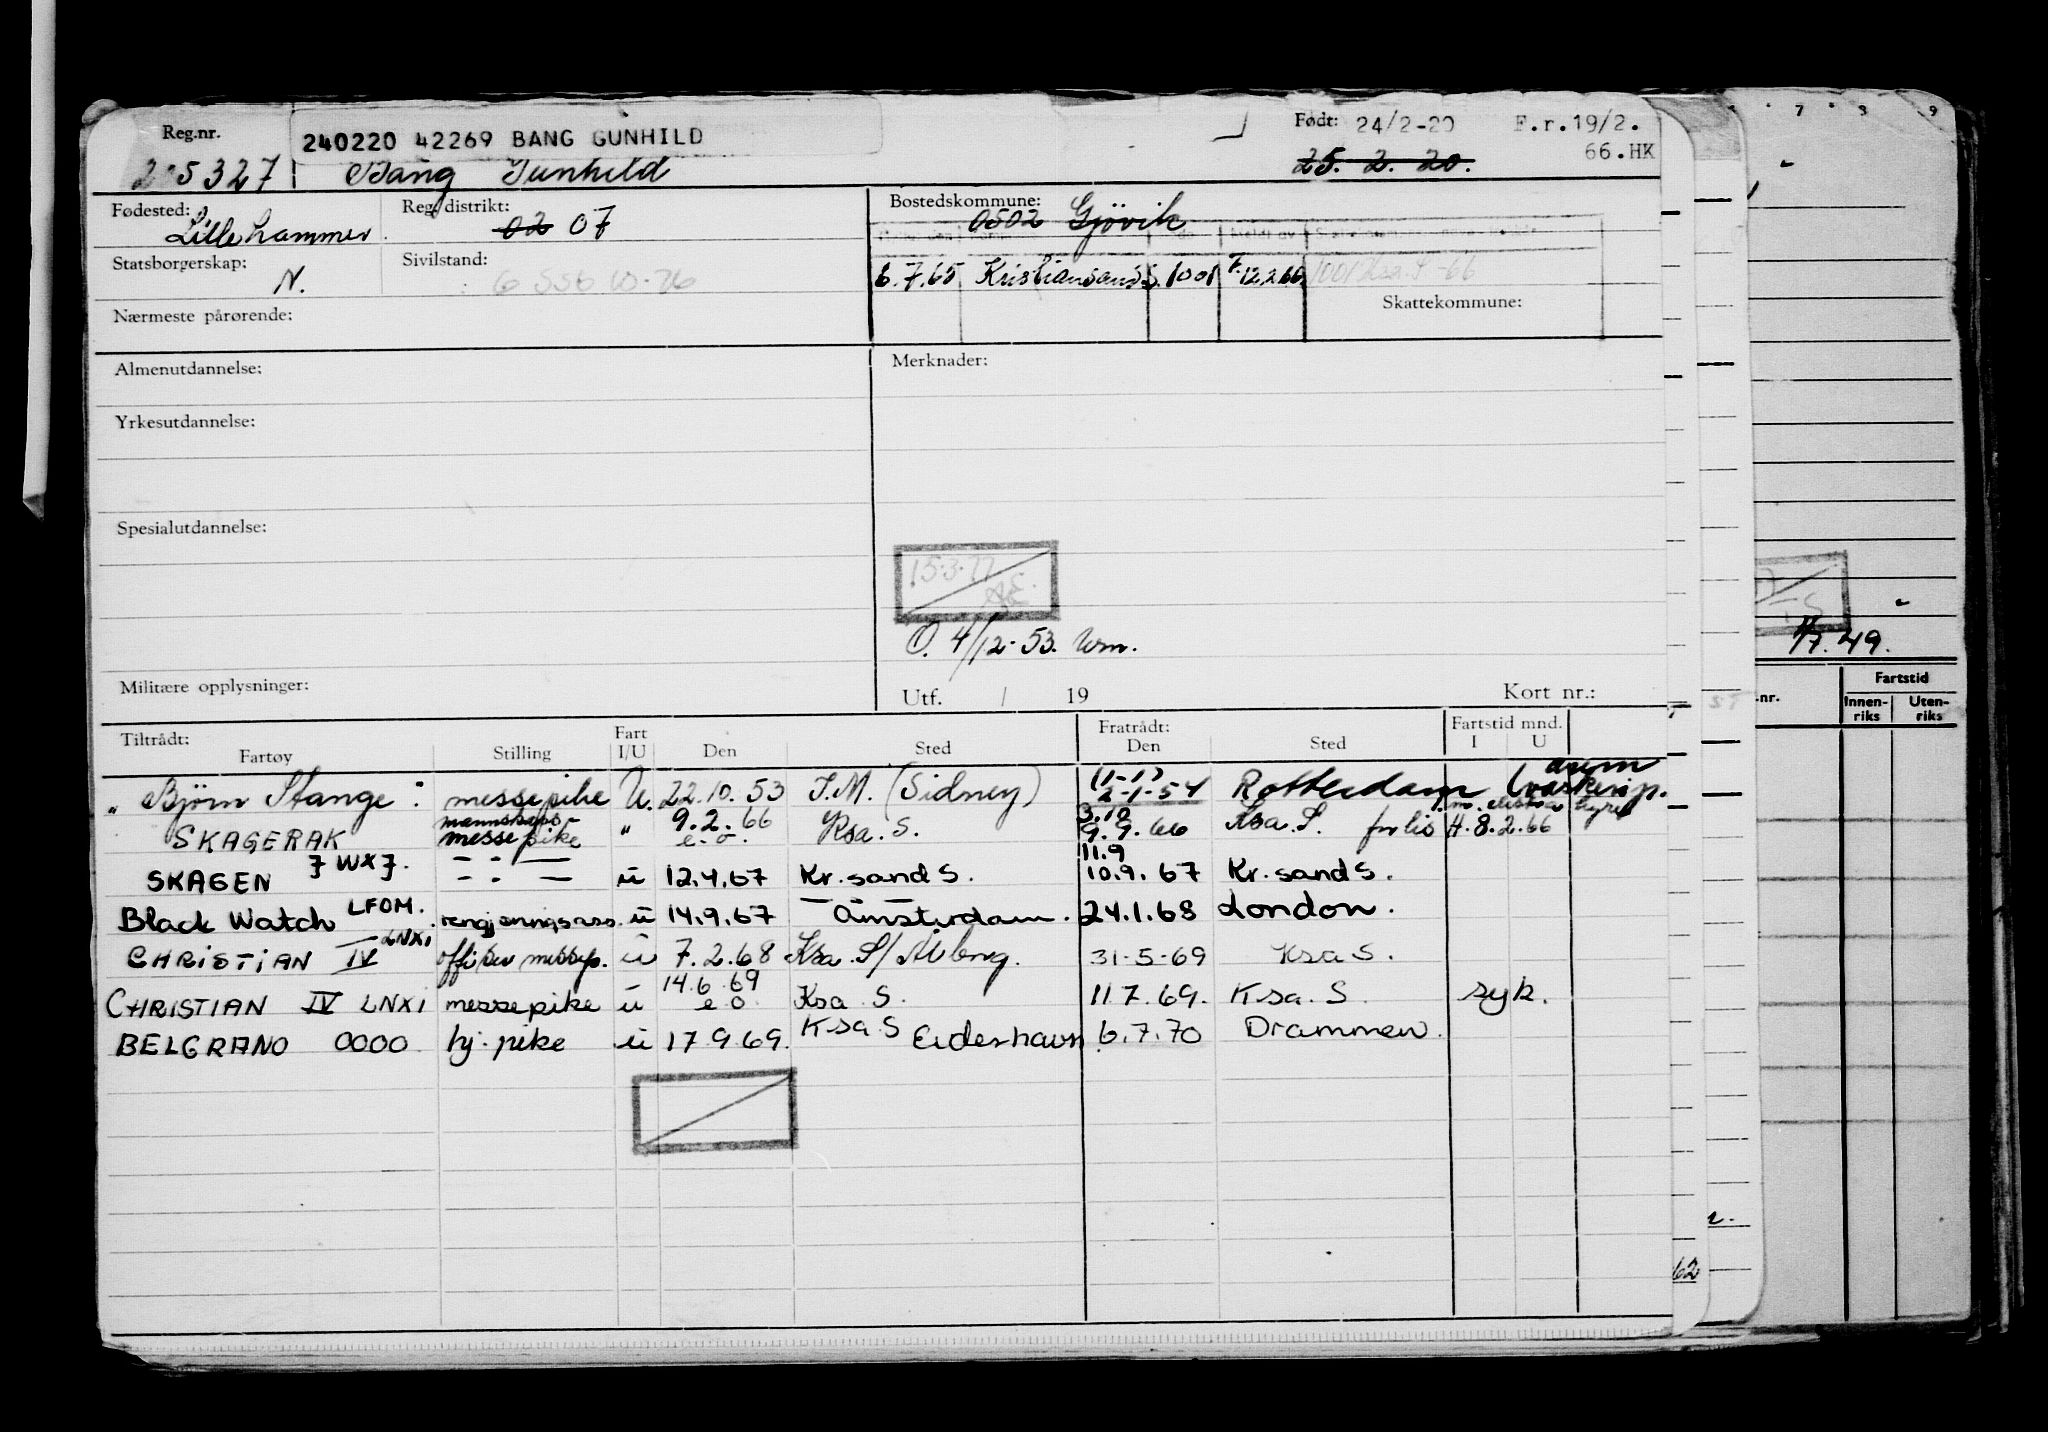 Reg.nr. 240220 42269 BANG GUNHILD Født: 24/2-20 F.r.19/2.
25. 2. 20. 66.HK
5327 Bang Gunhild
Fødested: Reg. distrikt: Bostedskommune:
Lillehammer 02 07 0502 Gjövik
Statsborgerskap: Sivilstand:
N. 6.7.65 Kristiansand S. 1001 F. 12.2.66
Nærmeste pårørende: Skattekommune:
Almenutdannelse: Merknader:
Yrkesutdannelse:
Spesialutdannelse:
15.3.77
AE.
O. 4/12-53.
Militære opplysninger: Utf. / 19 Kort nr.:
Tiltrådt: Fart Fratrådt: Fartstid mnd.
Fartøy Stilling I/U Den Sted Den Sted I U
" Björn Stange " messepike U. 22.10.53 I.M. (Sidney) 2-1-54 Rotterdam
SKAGERAK mannskaps- messepike " 9.2.66 e.o. Ksa. S. 3.10 9.9.66 Ksa. S. 8.2.66 hyre
SKAGEN JWXJ. - " - u 12.4.67 Kr.sand S. 11.9 10.9.67 Kr.sand S.
Black Watch LFOM. rengjøringsass. u 14.9.67 Amsterdam. 24.1.68 London.
CHRISTIAN IV LNXI offiser messep. u 7.2.68 Ksa. S/Ålborg. 31-5-69 Ksa S.
CHRISTIAN IV LNXI messepike u 14.6.69 e o Ksa. S. 11.7.69. Ksa. S. syk.
BELGRANO 0000 bj. pike u 17.9.69. Ksa S 6.7.70 Drammen.
7 8 9
/7.49.
nr. Fartstid
Innen-
riks Uten-
riks
62